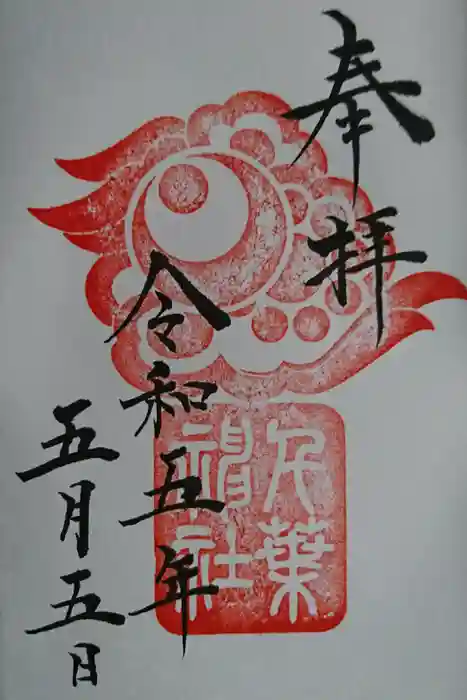 奉拝
令和五年
五月五日
千葉
神社